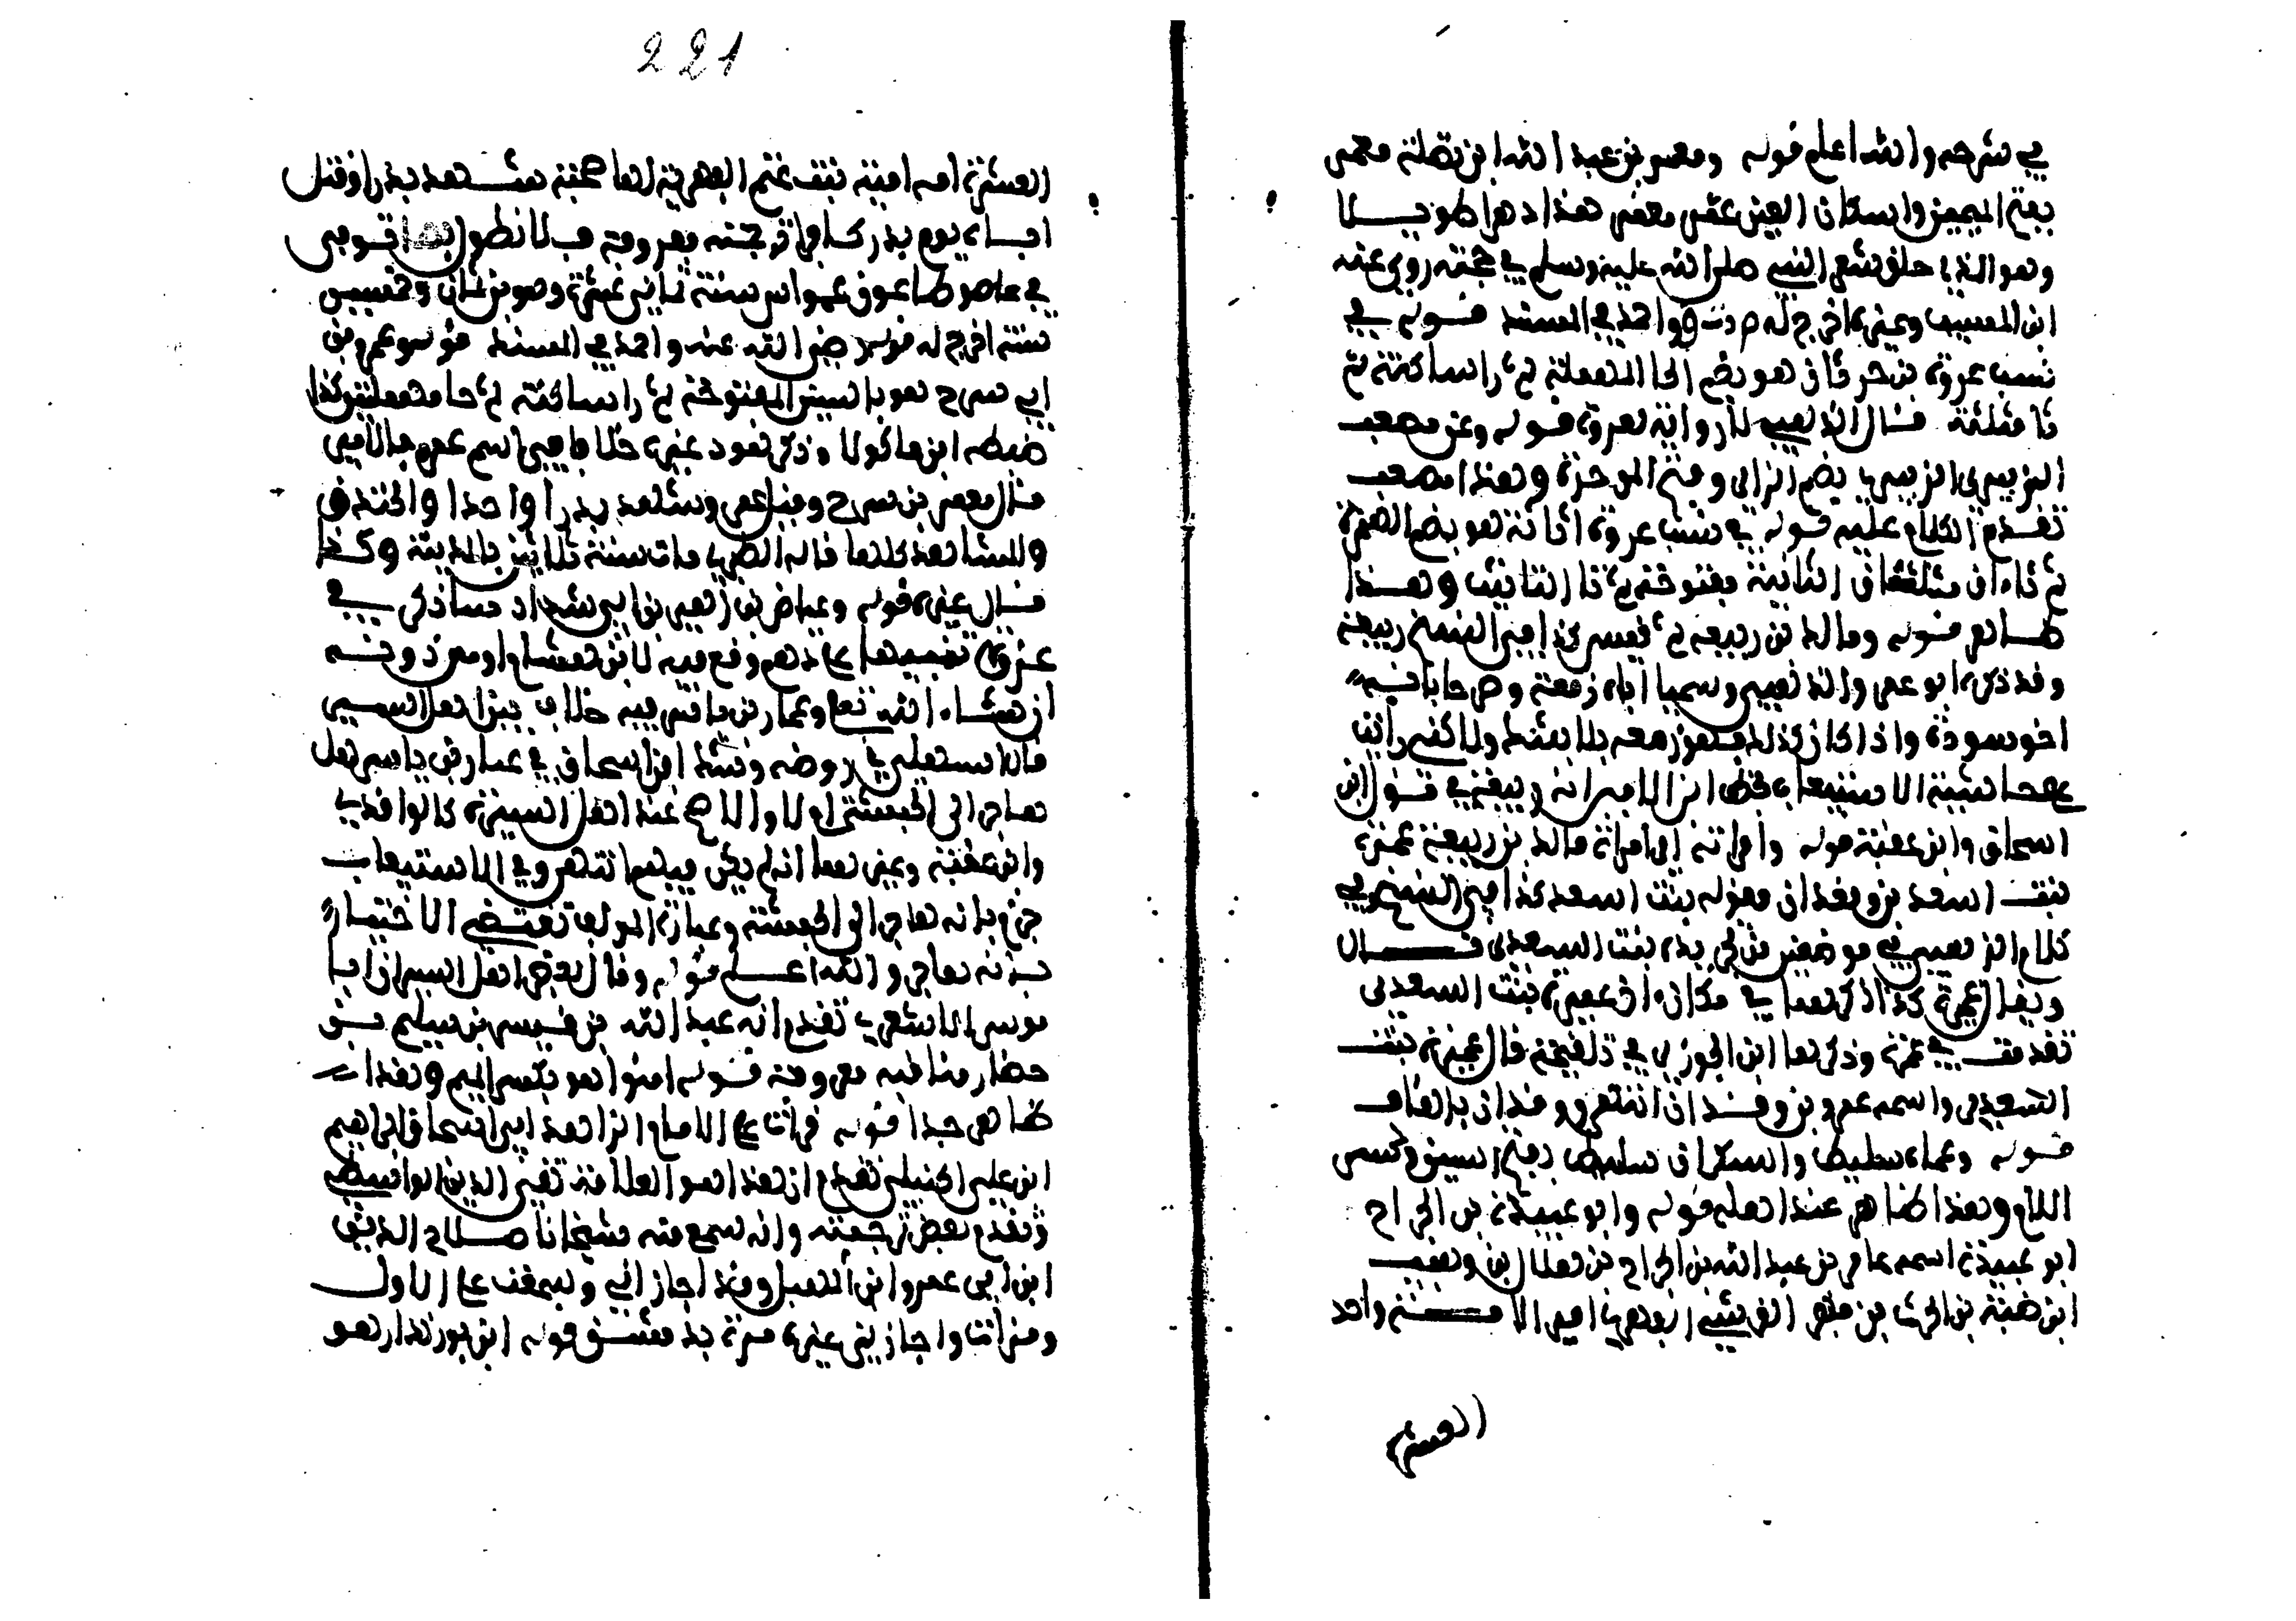 في شرحه والله اعلم قوله ومعمر بن عبد الله ابن نضلة معمر
بفتح الميمين واسكان العين عمر معمر هذا دهرا طويلا
وهو الذي حلق شعر النبي صلى الله عليه وسلم في حجته روى عنه
ابن المسيب وغيره اخرج له م د ت ق واحمد في المسند قوله في
نسب عروة بن حرثان هو بضم الحا المهملة ثم را ساكنة ثم
ثا مثلثة قال الذهبي لا رواية لعروة قوله وعن مصعب
الزبيري الزبيري بضم الزاي وفتح الموحدة وهذا مصعب
تقدم الكلام عليه قوله في نسب عروة اثاثة هو بضم الهمزة
ثم ثاءان مثلثتان الثانية مفتوحة ثم تا التانيث وهذا
ظاهر قوله ومالك بن ربيعة بن قيس كذا
وقد ذكره ابو عمر والذهبي وسميا اباه زمعة وصحابا فيه
اخو سودة واذا كان كذلك فهو زمعه بلا شك ولاكني رايت
بحاشية الاستيعاب بخط ابن الامين انه ربيعة في قول ابن
اسحاق وابن عقبة قوله وامراته اي امراة مالك بن ربيعة عمرة
بنت اسعد بن وقدان وقوله بنت اسعد كذا في النسخ وفي
كلام الذهبي في موضعين من تجريده بنت السعدي قال
ويقال عميرة كذا ذكرها في مكان اخر عميرة بنت السعدي
تقدمت في عمرة وذكرها ابن الجوزي في تلقيحه قال عميرة بنت
السعدي واسمه عمرو بن وقدان انتهى ووقدان بالقاف
قوله وعماه سليط والسكران سليط بفتح السين وكسر
اللام وهذا ظاهر عند اهله قوله وابو عبيدة بن الجراح
ابو عبيدة اسمه عامر بن عبد الله بن الجراح بن هلال بن وهيب
ابن ضبة بن الحرث بن فهر القرشي الفهري امير الامة واحد
العشرة
221
العشرة امه امية بنت غنم الفهرية لها صحبة شهد بدرا وقتل
اباه يوم بدر كافرا ترجمته معروفة فلا نطول بها توفي
في طاعون عمواس سنة ثماني عشرة وهو بن ثمان وخمسين
سنة اخرج له رضي الله عنه واحمد في المسند قوله وعمرو بن
ابي سرح هو بالسين المفتوحة ثم را ساكنة ثم حا مهملتين كذا
ضبطه ابن ماكولا وذكر هو وغيره خلافا في اسم عمرو هذا
قال معمر بن سرح وقيل عمر وشهد بدرا واحدا والخندق
والمشاهد كلها قاله الطبري مات سنة ثلاثين بالمدينة وكذا
قال غيره قوله وعياض بن زهير بن ابي شداد ساذكر في
غزوة تنبيها على وهم وقع فيه لابن هشام او من دونه
ان شاء الله تعالى وعمار بن ياسر فيه خلاف بين اهل السير
قال السهيلي في روضه وشك ابن اسحاق في عمار بن ياسر هل
هاجر الى الحبشة ام لا والاصح عند اهل السير كالواقدي
وابن عقبة وغيرهما انه لم يكن فيهم انتهى وفي الاستيعاب
جزم بانه هاجر الى الحبشة وعبارة المولف تقتضي الاختيار
بانه هاجر والله اعلم قوله وقال بعض اهل السير ان ابا
موسى الاشعري تقدم انه عبد الله بن قيس بن سليم بن
حضار مناقبه معروفة قوله امنوا هو بكسر الميم وهذا
ظاهر جدا قوله قرات على الامام الزاهد ابي اسحاق ابراهيم
ابن علي الحنبلي تقدم ان هذا هو العلامة تقي الدين الواسطي
وتقدم بعض ترجمته وانه سمع منه شيخانا صلاح الدين
ابن ابي عمر وابن الهبل وقد اجاز لي وسمعت على الاول
وقرات واجازني غير مرة بدمشق قوله ابن بورنداز هو